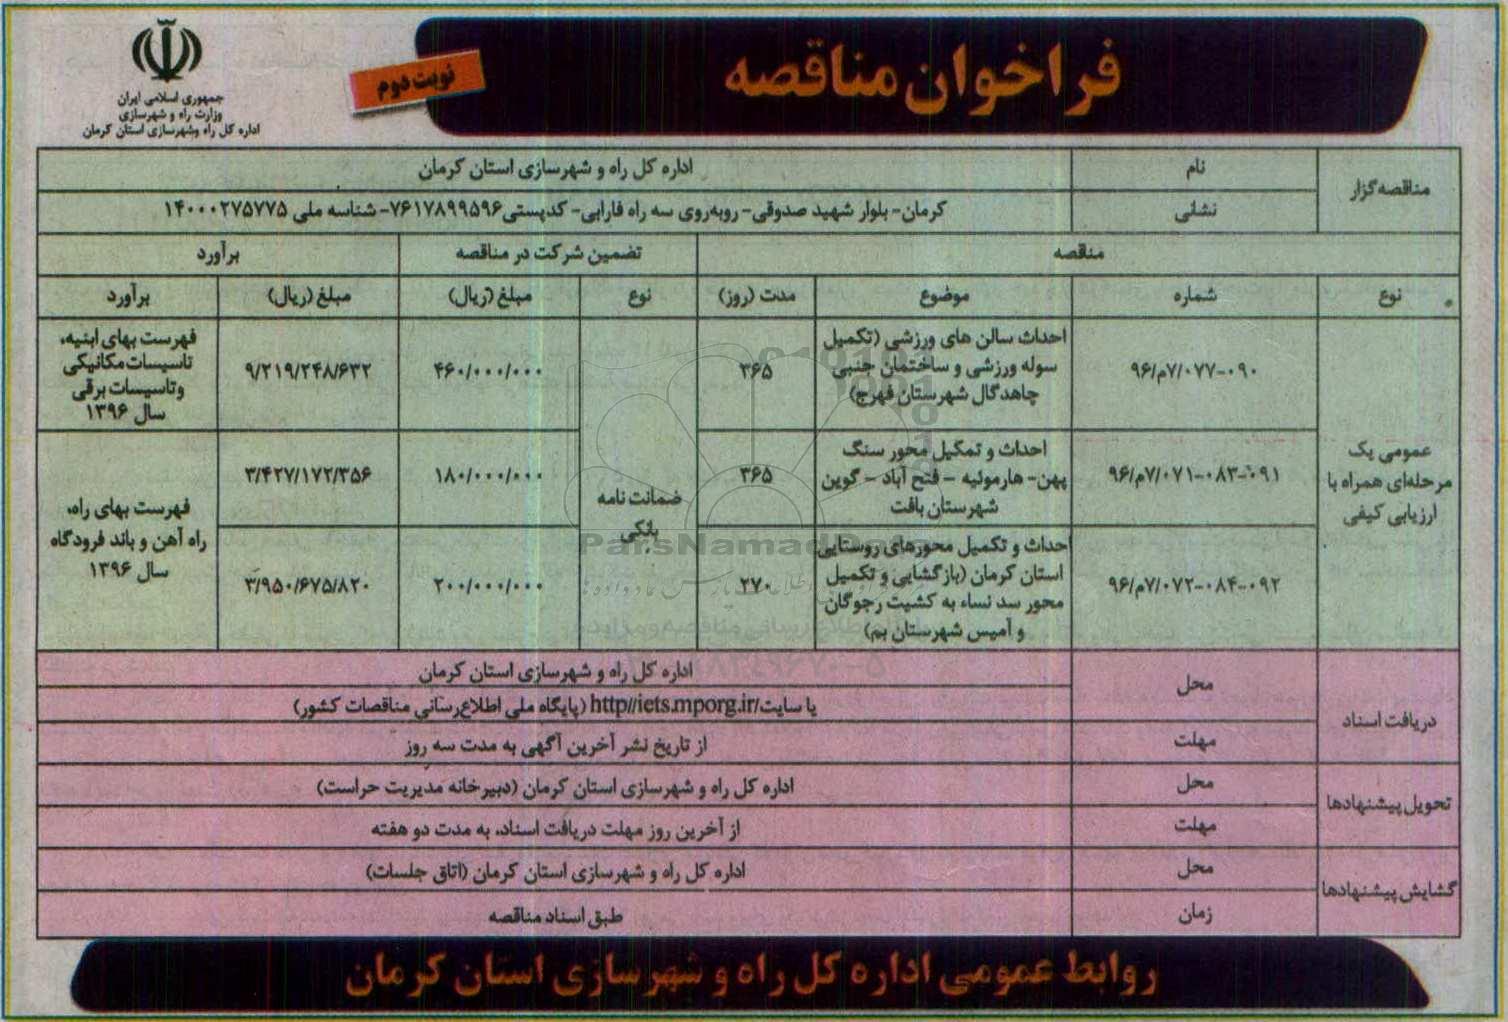 فراخوان مناقصه
نوبت دوم
جمهوری اسلامی ایران
وزارت راه و شهرسازی
اداره کل راه وشهرسازی استان کرمان
مناقصه‌گزار
نام
اداره کل راه و شهرسازی استان کرمان
نشانی
کرمان- بلوار شهید صدوقی- روبه‌روی سه راه فارابی- کدپستی۷۶۱۷۸۹۹۵۹۶-شناسه ملی ۱۴۰۰۰۲۷۵۷۷۵
مناقصه
تضمین شرکت در مناقصه
برآورد
نوع
شماره
موضوع
مدت (روز)
نوع
مبلغ (ریال)
مبلغ (ریال)
برآورد
عمومی یک
مرحله‌ای همراه با
ارزیابی کیفی
۹۶/م۷/۰۷۷-۰۹۰
احداث سالن های ورزشی (تکمیل
سوله ورزشی و ساختمان جنبی
چاهدگال شهرستان فهرج)
۳۶۵
ضمانت نامه
بانکی
۴۶۰/۰۰۰/۰۰۰
۹/۲۱۹/۲۴۸/۶۳۲
فهرست بهای ابنیه،
تاسیسات مکانیکی
وتاسیسات برقی
سال ۱۳۹۶
۹۶/م۷/۰۷۱-۰۸۳-۰۹۱
احداث و تمکیل محور سنگ
پهن- هارموئیه - فتح آباد - گوین
شهرستان بافت
۳۶۵
۱۸۰/۰۰۰/۰۰۰
۳/۴۲۷/۱۷۲/۳۵۶
فهرست بهای راه،
راه آهن و باند فرودگاه
سال ۱۳۹۶
۹۶/م۷/۰۷۲-۰۸۴-۰۹۲
احداث و تکمیل محورهای روستایی
استان کرمان (بازگشایی و تکمیل
محور سد نساء به کشیت رجوگان
و آمیس شهرستان بم)
۲۷۰
۲۰۰/۰۰۰/۰۰۰
۳/۹۵۰/۶۷۵/۸۲۰
دریافت اسناد
محل
اداره کل راه و شهرسازی استان کرمان
یا سایت/http//iets.mporg.ir (پایگاه ملی اطلاع‌رسانی مناقصات کشور)
مهلت
از تاریخ نشر آخرین آگهی به مدت سه روز
تحویل پیشنهادها
محل
اداره کل راه و شهرسازی استان کرمان (دبیرخانه مدیریت حراست)
مهلت
از آخرین روز مهلت دریافت اسناد، به مدت دو هفته
گشایش پیشنهادها
محل
اداره کل راه و شهرسازی استان کرمان (اتاق جلسات)
زمان
طبق اسناد مناقصه
روابط عمومی اداره کل راه و شهرسازی استان کرمان
ParsNamadData